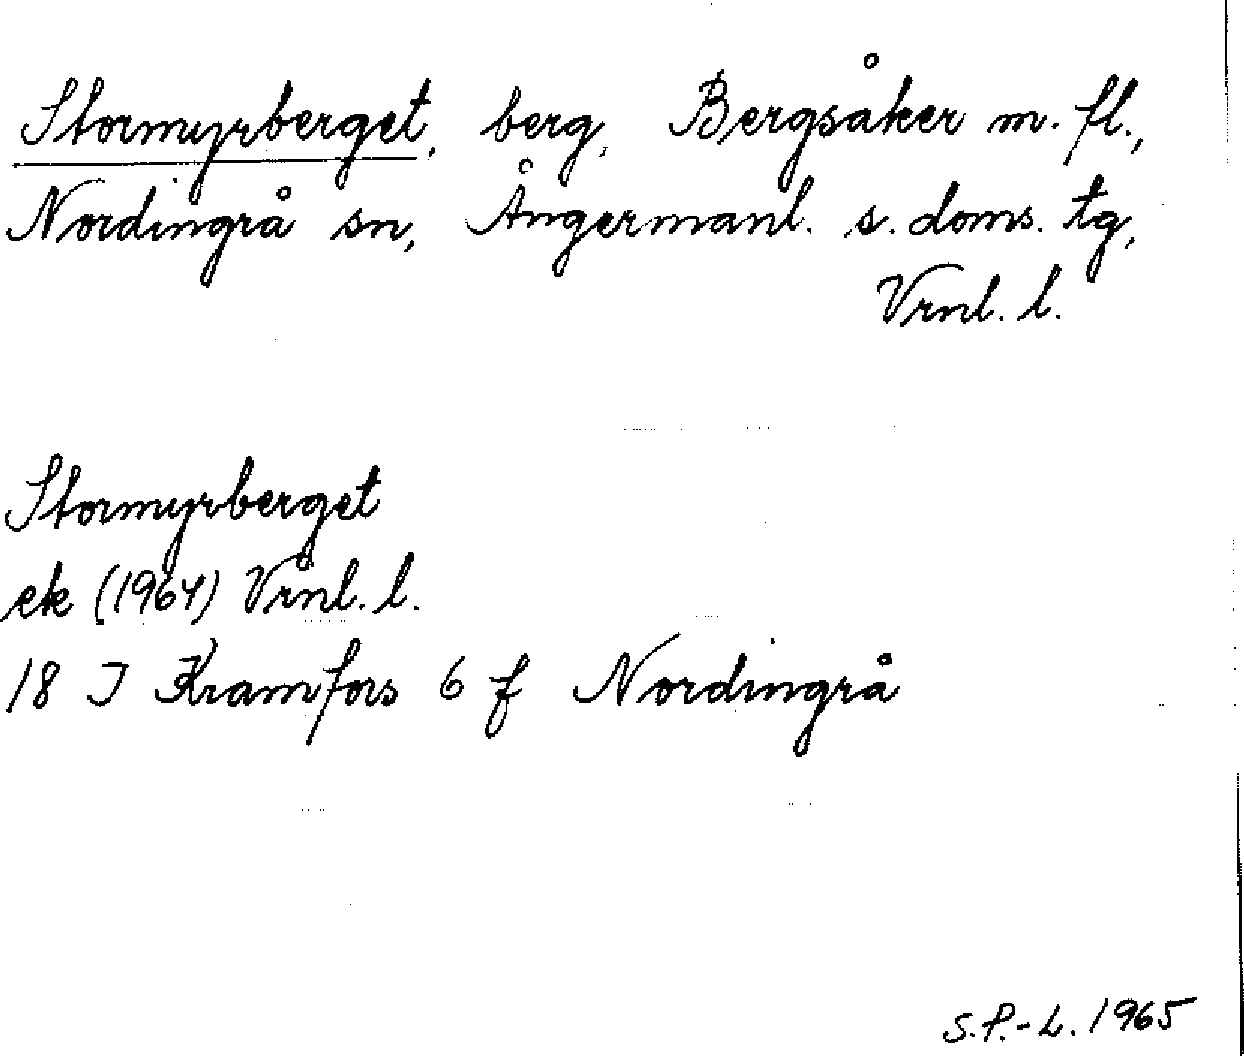 Stormyrberget, berg, Bergsåker m. fl.,
Nordingrå sn, Ångermanl. s. doms. tg,
Vrnl. l.
Stormyrberget
ek (1964) Vrnl. l.
18 I Kramfors 6 f Nordingrå
S.P.-L. 1965